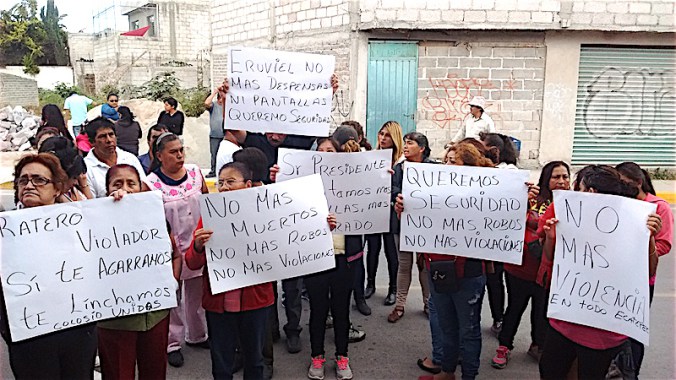 ERUVIEL NO
MAS DESPENSAS
NI PANTALLAS
QUEREMO SEGURIDAD
RATERO
VIOLADOR
SI TE AGARRAMOS
TE LINCHAMOS
COLOSIO UNIDOS
NO MAS
MUERTOS
NO MAS ROBOS
NO MAS VIOLACIONES
Sr PRESIDENTE
QUEREMOS
SEGURIDAD
NO MAS ROBOS
NO MAS VIOLACIONES
NO
MAS
VIOLENCIA
EN TODO ECATEPEC